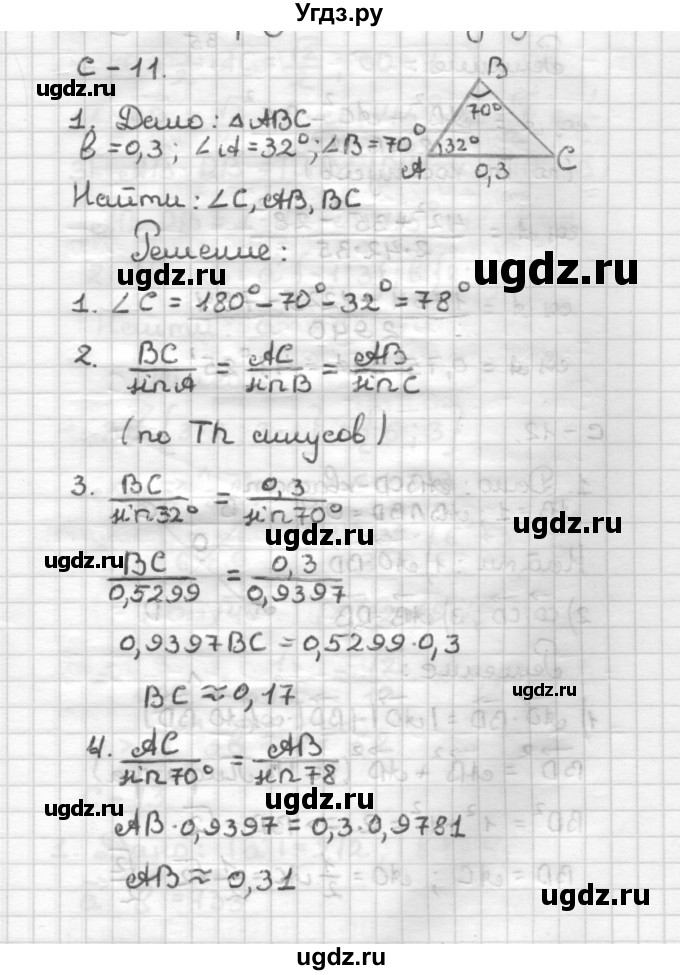 Угдз.ру
С - 11.
ugdz.ru
1. Дано: △ABC
b = 0,3; ∠A = 32°; ∠B = 70°
B
70°
32°
A
0,3
C
ugdz.ru
Найти: ∠C, AB, BC
Решение:
ugdz.ru
ugdz.ru
1. ∠C = 180° - 70° - 32° = 78°
ugdz.ru
2. BC/sinA = AC/sinB = AB/sinC
ugdz.ru
(по Th синусов)
ugdz.ru
3. BC/sin32° = 0,3/sin70°
ugdz.ru
ugdz.ru
BC/0,5299 = 0,3/0,9397
ugdz.ru
0,9397BC = 0,5299·0,3
ugdz.ru
BC ≈ 0,17
ugdz.ru
4. AC/sin70° = AB/sin78
ugdz.ru
ugdz.ru
AB·0,9397 = 0,3·0,9781
AB ≈ 0,31
ugdz.ru
ugdz.ru
ugdz.ru